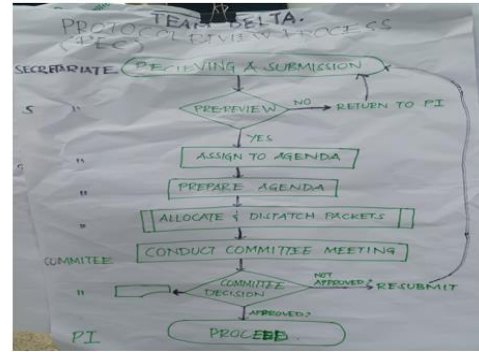 TEAM DELTA.
PROTOCOL REVIEW PROCESS
(REC)
SECRETARIATE RECIEVING A SUBMISSION
S " PRE-REVIEW NO RETURN TO PI
YES
S " ASSIGN TO AGENDA
" PREPARE AGENDA
" ALLOCATE & DISTATCH PACKETS
COMMITEE CONDUCT COMMITTEE MEETING
" COMMITTEE DECISION NOT APPROVED? RESUBMIT
APPROVED?
PI PROCEED.